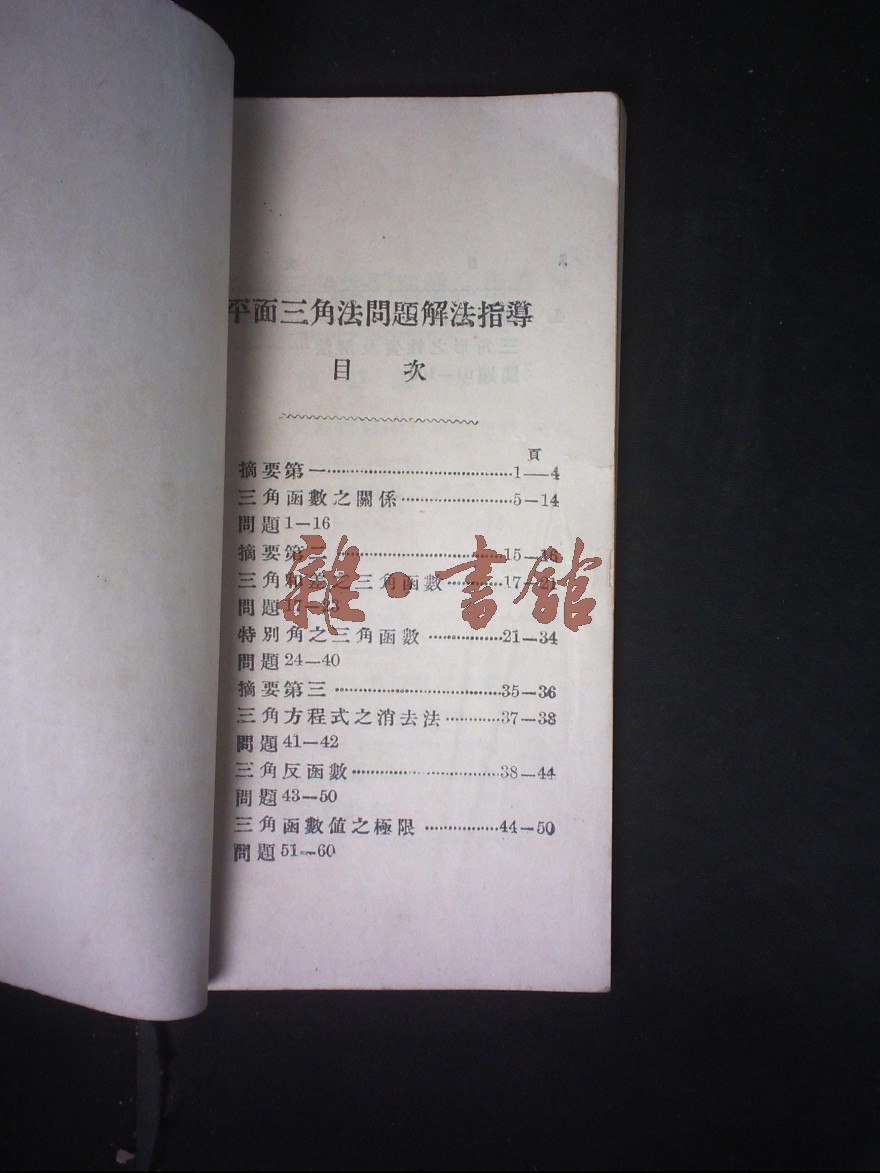 平面三角法問題解法指導
目次
頁
摘要第一……1—4
三角函數之關係……5—14
問題1—16
摘要第二……15—16
三角和差之三角函數……17—21
問題17—23
特別角之三角函數……21—34
問題24—40
摘要第三……35—36
三角方程式之消去法……37—38
問題41—42
三角反函數……38—44
問題43—50
三角函數值之極限……44—50
問題51—60
雜·書館